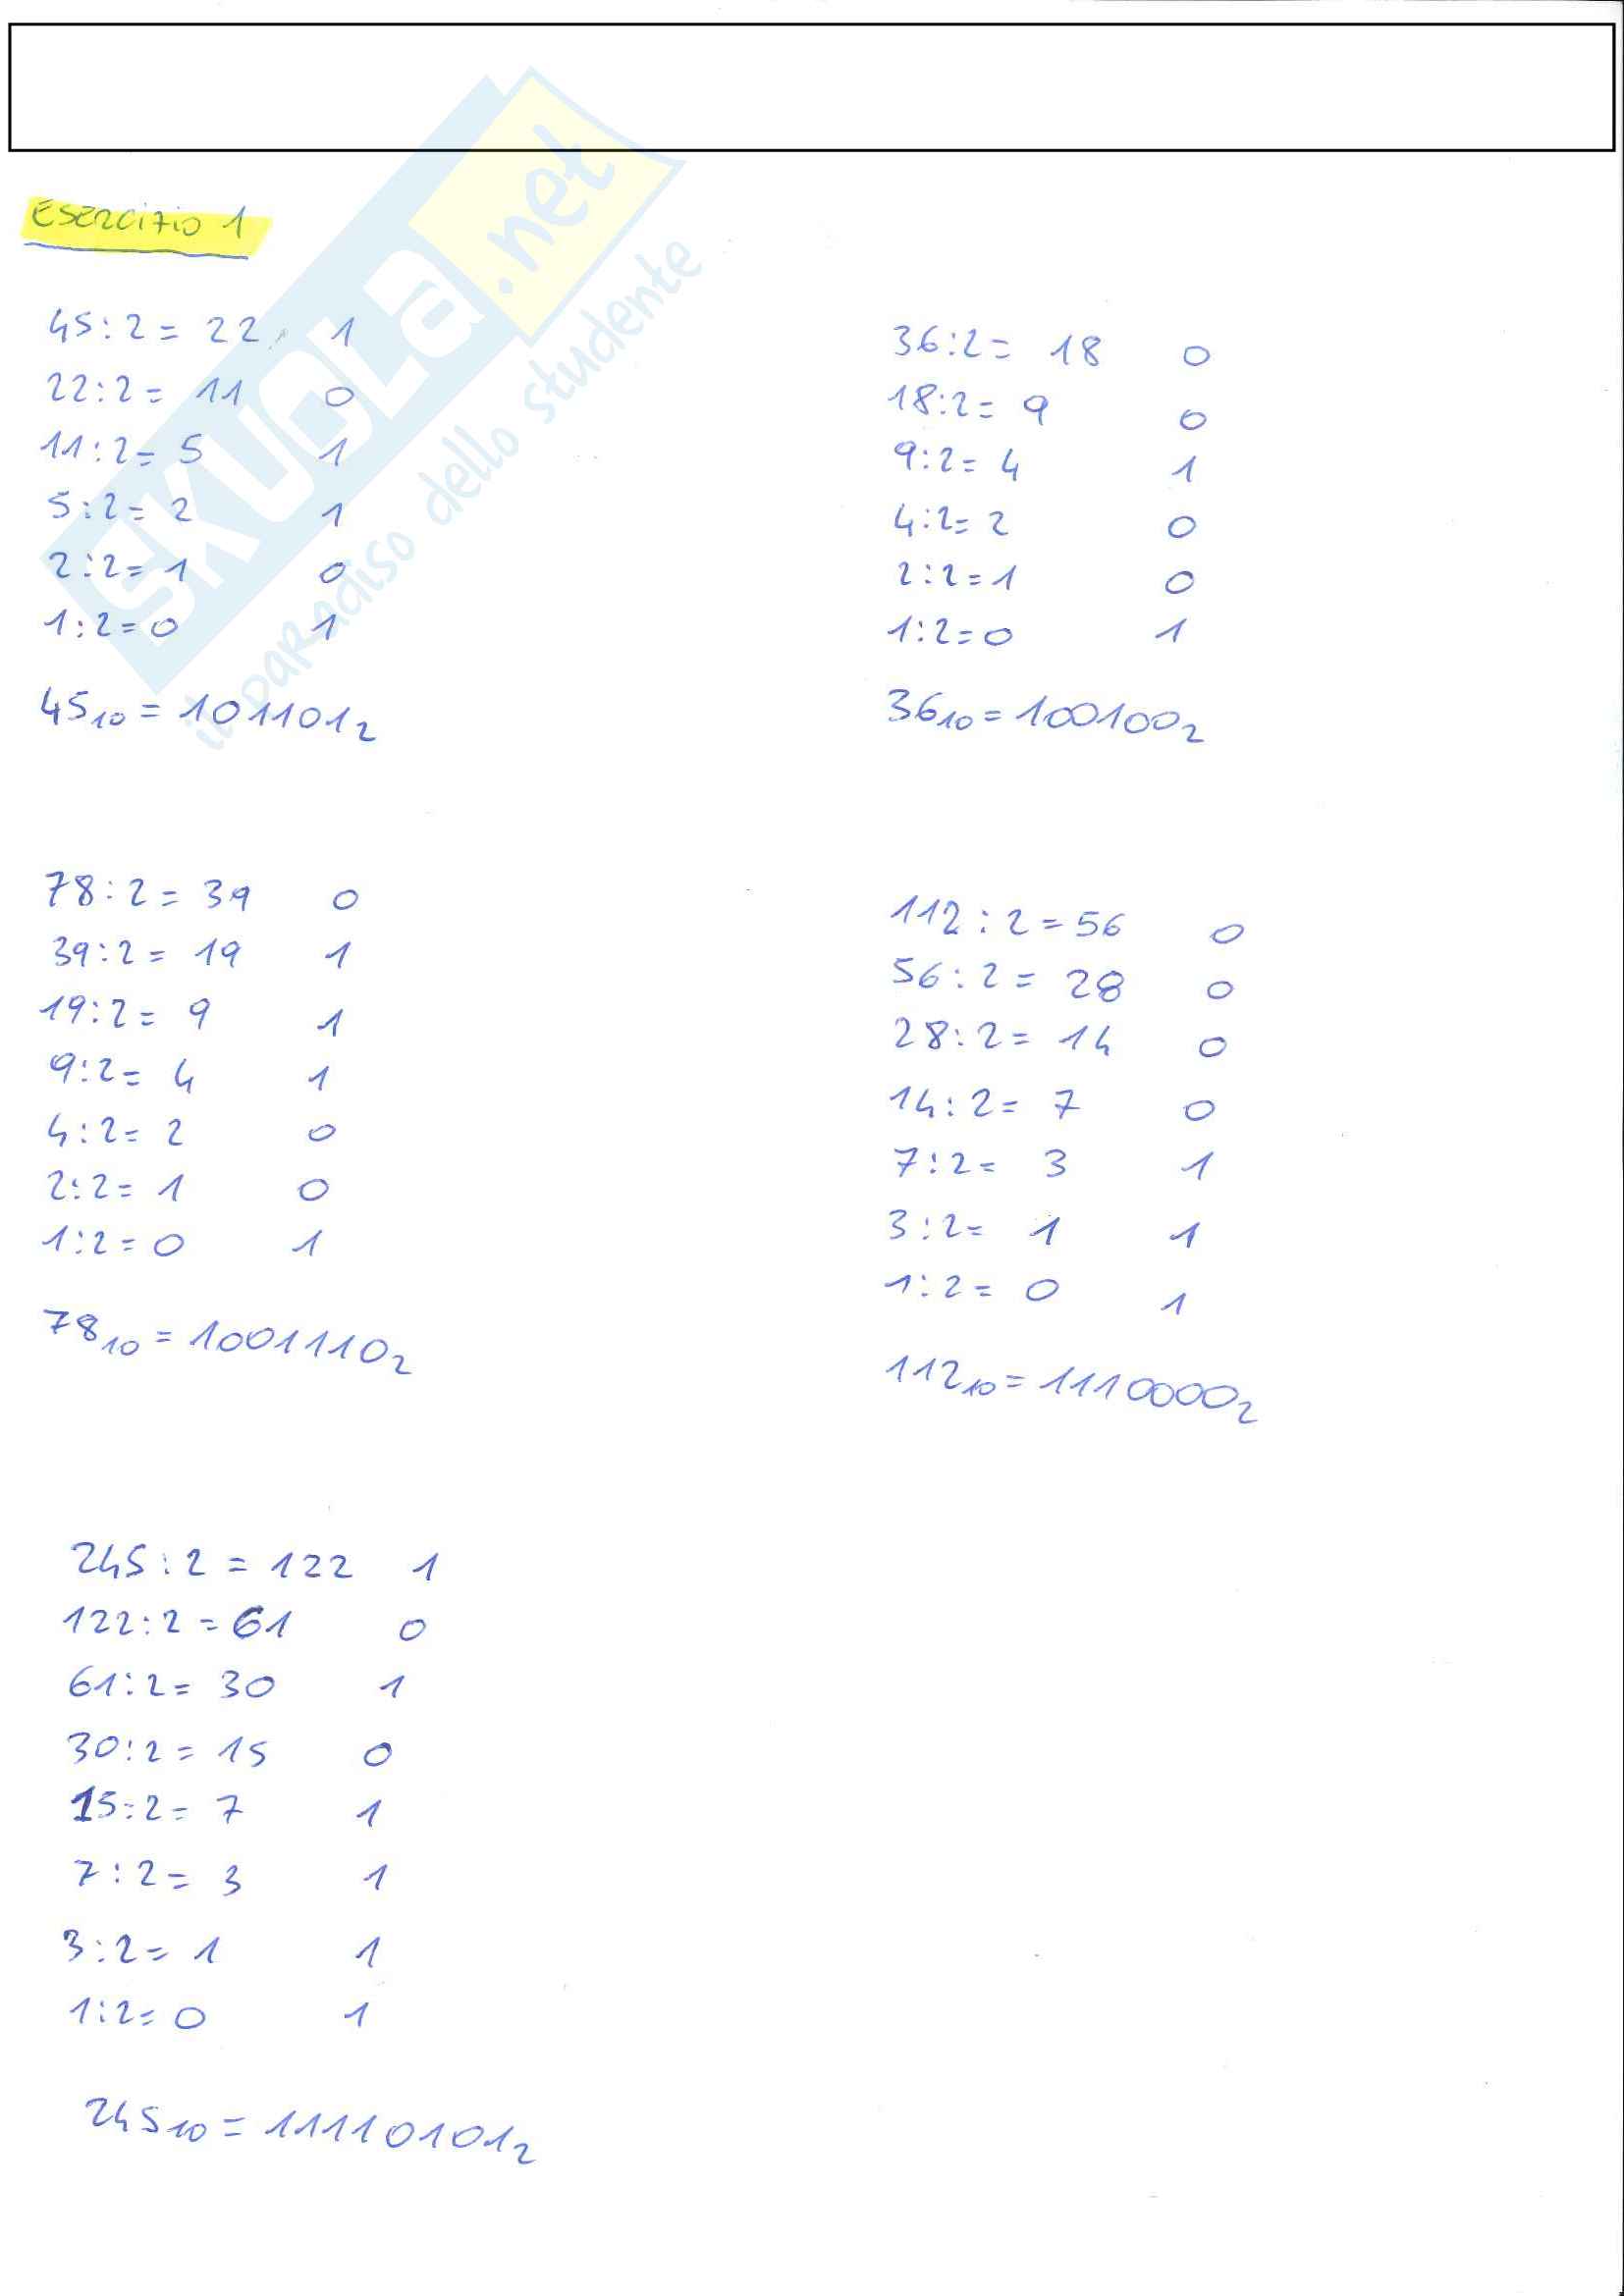 SKUOLa.net
il paradiso dello studente
Esercizio 1
45:2= 22 1
22:2= 11 0
11:2= 5 1
5:2= 2 1
2:2= 1 0
1:2=0 1
45₁₀ = 101101₂
36:2= 18 0
18:2= 9 0
9:2= 4 1
4:2= 2 0
2:2=1 0
1:2=0 1
36₁₀ = 100100₂
78:2= 39 0
39:2= 19 1
19:2= 9 1
9:2= 4 1
4:2= 2 0
2:2= 1 0
1:2=0 1
78₁₀ = 1001110₂
112:2=56 0
56:2= 28 0
28:2= 14 0
14:2= 7 0
7:2= 3 1
3:2= 1 1
1:2= 0 1
112₁₀ = 1110000₂
245:2=122 1
122:2=61 0
61:2= 30 1
30:2= 15 0
15:2= 7 1
7:2= 3 1
3:2= 1 1
1:2= 0 1
245₁₀ = 11110101₂